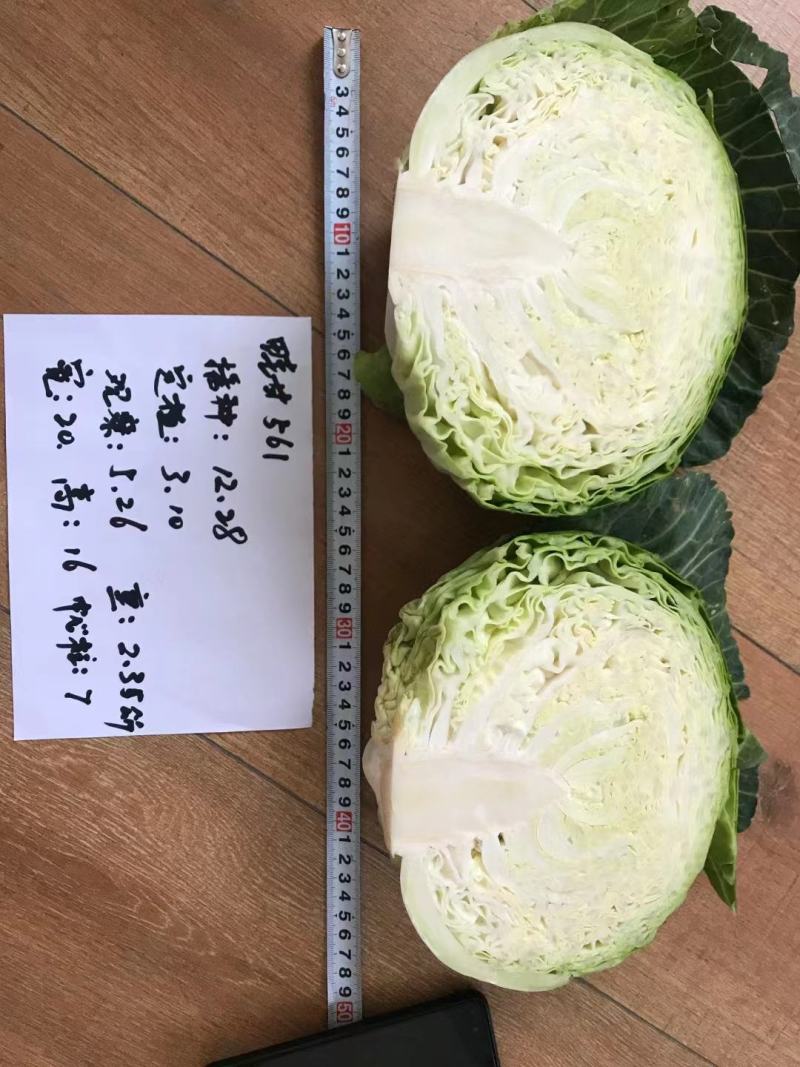 甘 561
播种: 12.28
定植: 3.10
5.26 重: 2.35斤
宽: 20. 高: 16 中心柱: 7
3 4 5 6 7 8 9 10 1 2 3 4 5 6 7 8 9 20 1 2 3 4 5 6 7 8 9 30 1 2 3 4 5 6 7 8 9 40 1 2 3 4 5 6 7 8 9 50